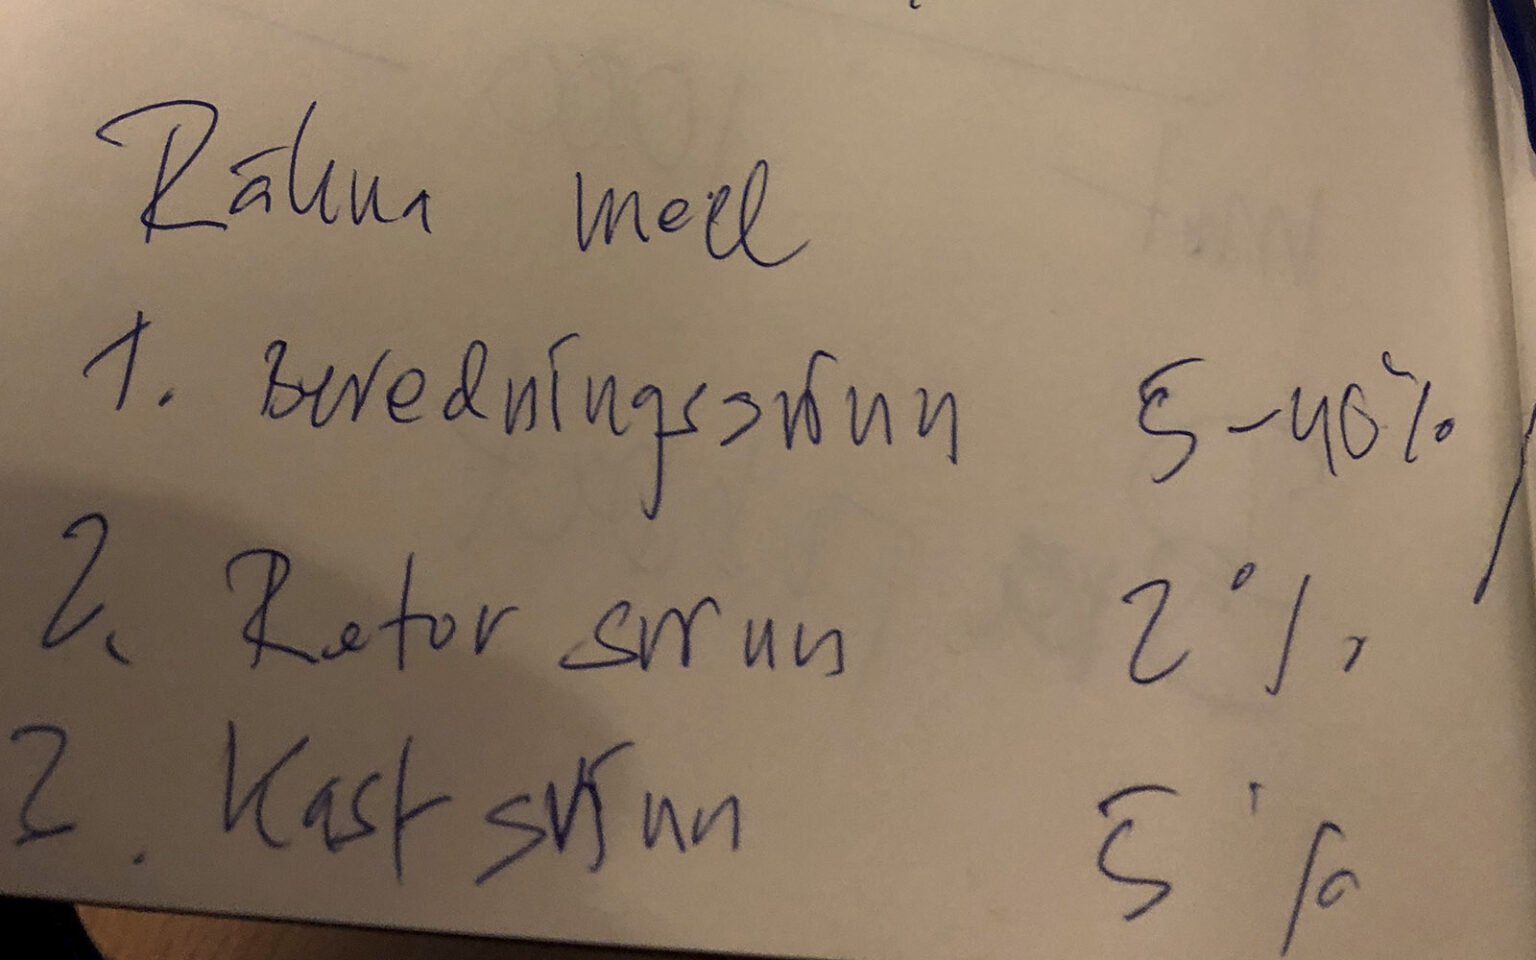 Räkna med
1. Beredningssvinn 5-40%
2. Retor svinn 2%
3. Kast svinn 5%